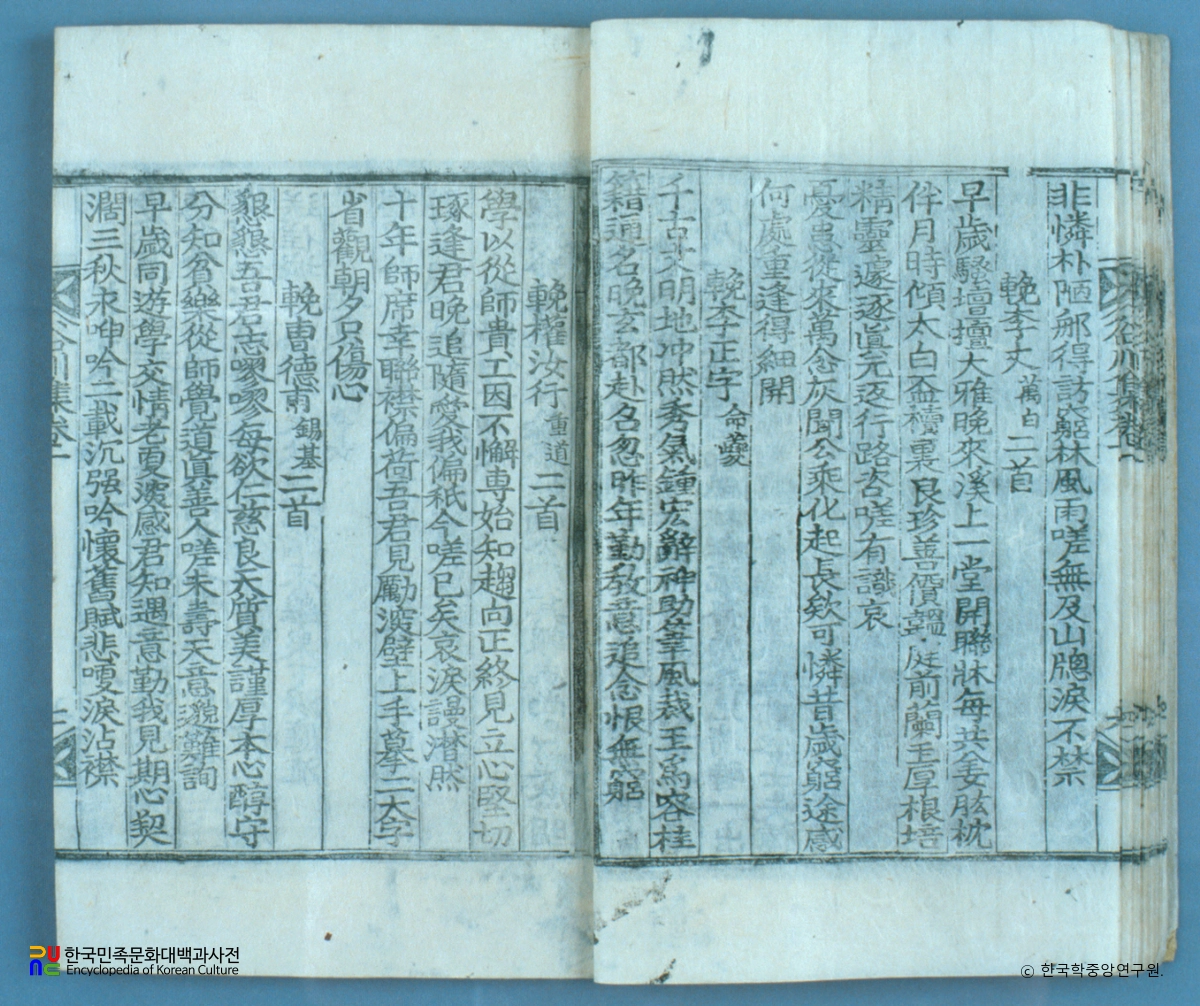 非憐朴陋那得訪窮林風雨嗟無及山牕淚不禁
輓李丈萬白二首
早歲騷壇擅大雅晚來溪上一堂開聯牀每共姜肱枕
伴月時傾太白盃櫝裏良珍善價韞庭前蘭玉厚根培
精靈遽逐眞元返行路咨嗟有識哀
憂患從來萬念灰聞公乘化起長欸可憐昔歲窮途感
何處重逢得細開
輓李正字命夔
千古文明地冲然秀氣鍾宏辭神助筆風裁玉爲容桂
籍通名晚玄都赴召忽昨年勤教意追念恨無窮
輓權汝行重道二首
學以從師貴工因不懈專始知趨向正終見立心堅切
琢逢君晚追隨愛我偏秖今嗟已矣哀淚謾潸然
十年師席幸聯襟偏荷吾君見勵深壁上手摹二大字
省觀朝夕只傷心
輓曹德甫錫基二首
懇懇吾君志嘐嘐每欲仁慈良天質美謹厚本心醇守
分知貧樂從師覺道眞善人嗟未壽天意邈難詢
早歲同遊學交情老更深感君知遇意勤我見期心契
濶三秋永呻吟二載沉强吟懷舊賦悲嗄淚沾襟
谷川集卷一
한국민족문화대백과사전
Encyclopedia of Korean Culture
© 한국학중앙연구원.